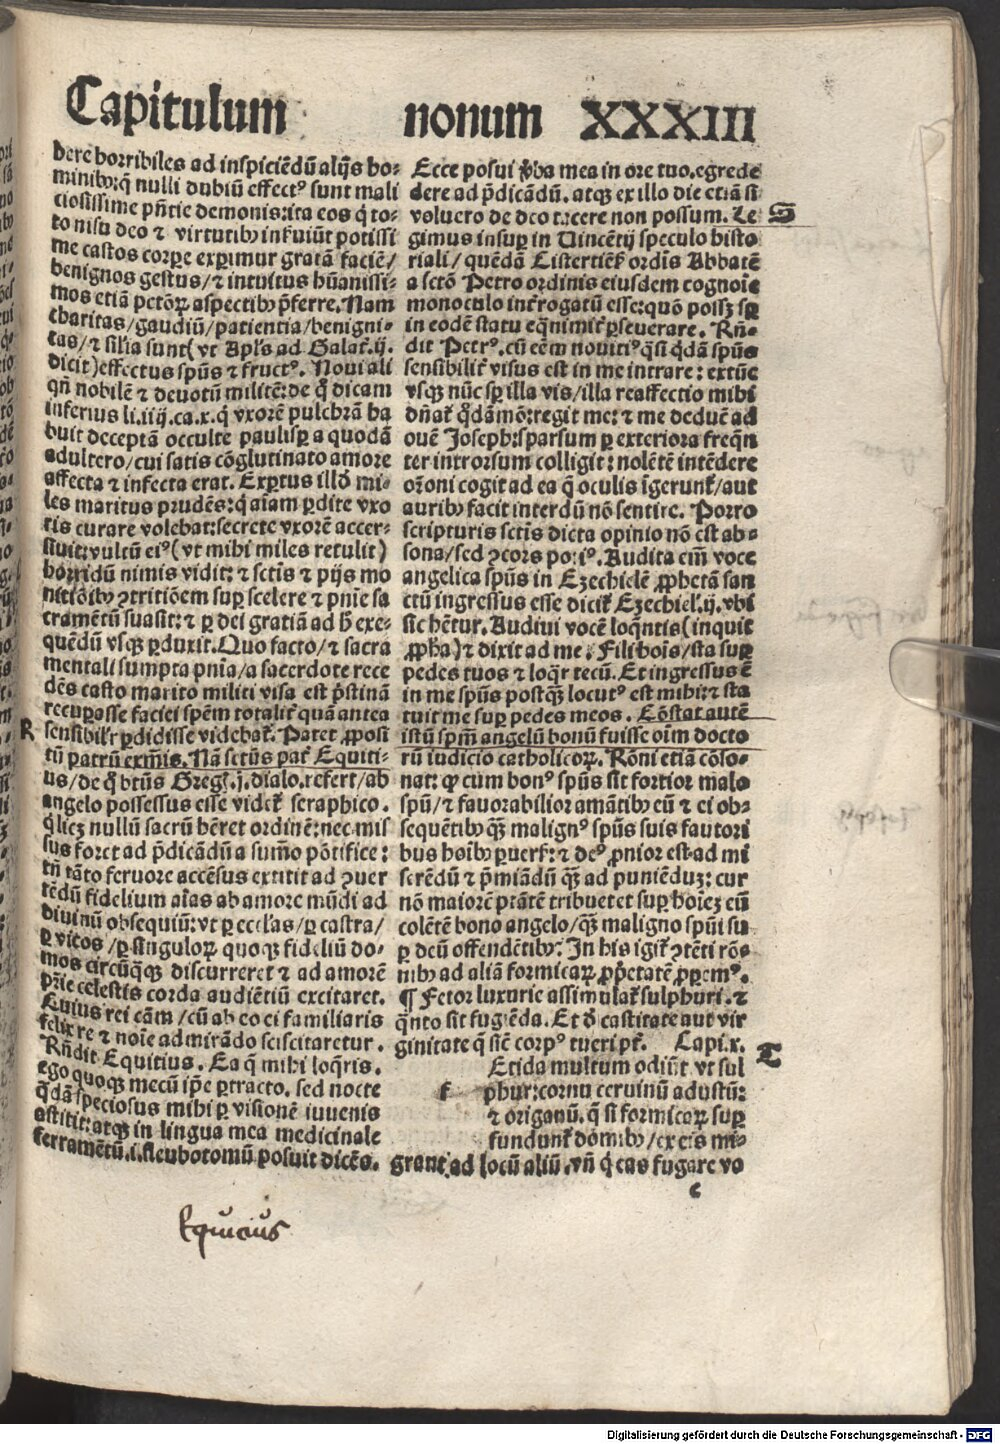 Capitulum nonum XXXIII
dere horribiles ad inspiciēdū alijs ho⸗
minibꝰ:qͥ nulli dubiū effectꝰ sunt mali
ciosissime pn̄tie demonis:ita eos q̄ to⸗
to nisu deo ⁊ virtutibꝰ inẜuiūt potissi
me castos corpe experimur gratā faciē/
benignos gestus/⁊ intuitus hūanissi⸗
mos etiā pctōꝝ aspectibꝰ p̄ferre. Nam
charitas/gaudiū/patientia/benigni⸗
tas/⁊ sil̄ia sunt(vt Apl's ad Galat̄.ij.
dicit)effectus spūs ⁊ fructꝰ. Noui ali
qn̄ nobilē ⁊ deuotū militē:de qͦ dicam
inferius li.iiij.ca.x.qͥ vxorē pulchrā ha
buit deceptā occulte paulisꝑ a quodā
adultero/cui satis cōglutinato amore
affecta ⁊ infecta erat. Expertus illd̄ mi⸗
les maritus prudēs:qͥ aīam ꝑdite vxo
ris curare volebat:secrete vxorē accer⸗
siuit:vultū eiꝰ(vt mihi miles retulit)
horridū nimis vidit:⁊ sctīs ⁊ pijs mo
nitiōibꝰ ꝯtritiōem suꝑ scelere ⁊ pnīe sa
cramētū suasit:⁊ ꝑ dei gratiā ad h̄ exe⸗
quēdū vsqꝫ ꝑduxit. Quo facto/⁊ sacra
mentali sumpta pnīa/a sacerdote rece
dēs casto marito militi visa est pͥstinā
recuꝑasse faciei spēm totalit̄ quā antea
R sensibil'r ꝑdidisse videbat̄. Patet ꝓposi
tū patrū exm̄is. Nā sctūs pat̄ Equiti⸗
us/de qͦ btūs Greg̃.j.dialo.refert/ab
angelo possessus esse videt̄ seraphico.
qͥ licꝫ nullū sacrū hēret ordinē:nec mis
sus foret ad p̄dicādū a sum̄o pōtifice:
tn̄ tāto feruore accēsus extitit ad ꝯuer
tēdū fidelium aīas ab amore mūdi ad
diuinū obsequiū:vt ꝑ eccl'as/ꝑ castra/
ꝑ vicos/ꝑ singuloꝝ quoqꝫ fideliū do⸗
mos circūqꝫqꝫ discurreret ⁊ ad amorē
prīe celestis corda audiētiū excitaret.
Cuius rei cām/cū ab eo ei familiaris
felix re ⁊ noīe admirādo sciscitaretur.
Rn̄dit Equitius. Ea q̄ mihi loqr̄is.
ego quoqꝫ mecū ip̄e ꝑtracto. sed nocte
qͣdā speciosus mihi ꝑ visionē iuuenis
astitit:atqꝫ in lingua mea medicinale
ferramētū.i.fleubotomū posuit dicēs.
Equicius
Ecce posui ꝟba mea in ore tuo.egrede
dere ad p̄dicādū. atqꝫ ex illo die etiā si
voluero de deo tacere non possum. Le S
gimus insuꝑ in Vincētij speculo histo
riali/quēdā Cisterciēẜ ordīs Abbatē
a sctō Petro ordinis eiusdem cognoīe
monoculo int̄rogatū esse:quō possꝫ sꝑ
in eodē statu eqͣnimit̄ ꝑseuerare. Rn̄⸗
dit Petrꝰ. cū eēm nouitiꝰ qͣsi qͥdā spūs
sensibilit̄ visus est in me intrare: extūc
vsqꝫ nūc sꝑ illa vis/illa reaffectio mihi
dn̄at̄ qͦdāmō:regit me:⁊ me deducē ad
ouē Joseph:sparsum ꝑ exteriora freqn̄
ter introrsum colligit: nolētē intēdere
or̄oni cogit ad ea q̄ oculis īgerunt̄/aut
auribꝰ facit interdū nō sentire. Porro
scripturis sctīs dicta opinio nō est ab⸗
sona/sed ꝯcors potiꝰ. Audita em̄ voce
angelica spūs in Ezechielē ꝓphetā san
ctū ingressus esse dicit̄ Ezechiel.ij.vbi
sic hētur. Audiui vocē loqn̄tis(inquit
ꝓph̄a)⁊ dixit ad me. Fili hoīs/sta suꝑ
pedes tuos ⁊ loqr̄ tecū. Et ingressus ē
in me spūs postqꝫ locutꝰ est mihi:⁊ sta
tuit me suꝑ pedes meos. Cōstat autē
istū spm̄ angelū bonū fuisse oīm docto
rū iudicio catholicoꝝ. Rōni etiā cōso⸗
nat: ꝙ cum bonꝰ spūs sit fortior malo
spū/⁊ fauorabilior amātibꝰ eū ⁊ ei ob⸗
sequētibꝰ qꝫ malignꝰ spūs suis fautori
bus hoībꝰ ꝑuerẜ:⁊ deꝰ ꝓnior est ad mi
serēdū ⁊ p̄miādū qꝫ ad puniēduꝫ: cur
nō maiorē ptātē tribueret suꝑ hoīeꝫ eū
colētē bono angelo/qꝫ maligno spūi su
ꝑ deū offendētibꝰ. In his igit̄ ꝯtēti rōs⸗
nibꝰ ad aliā formicaꝝ ꝓp̄etatē ꝓꝑemꝰ.
¶ Fetor luxurie assimulat̄ sulphuri.⁊
qn̄to sit fugiēda. Et d̄ castitate aut vir
ginitate q̄ siē corpꝰ tueri pt̄. Capi.x. T
Etida multum odiūt vt sul
f phur:cornu ceruinū adustū:
⁊ origanū. q̄ si formicaꝝ suꝑ
fundunt̄ domibꝰ/ex eis mi⸗
grant ad locū aliū. vn̄ qͥ eas fugare vo
e
Digitalisierung gefördert durch die Deutsche Forschungsgemeinschaft - DFG